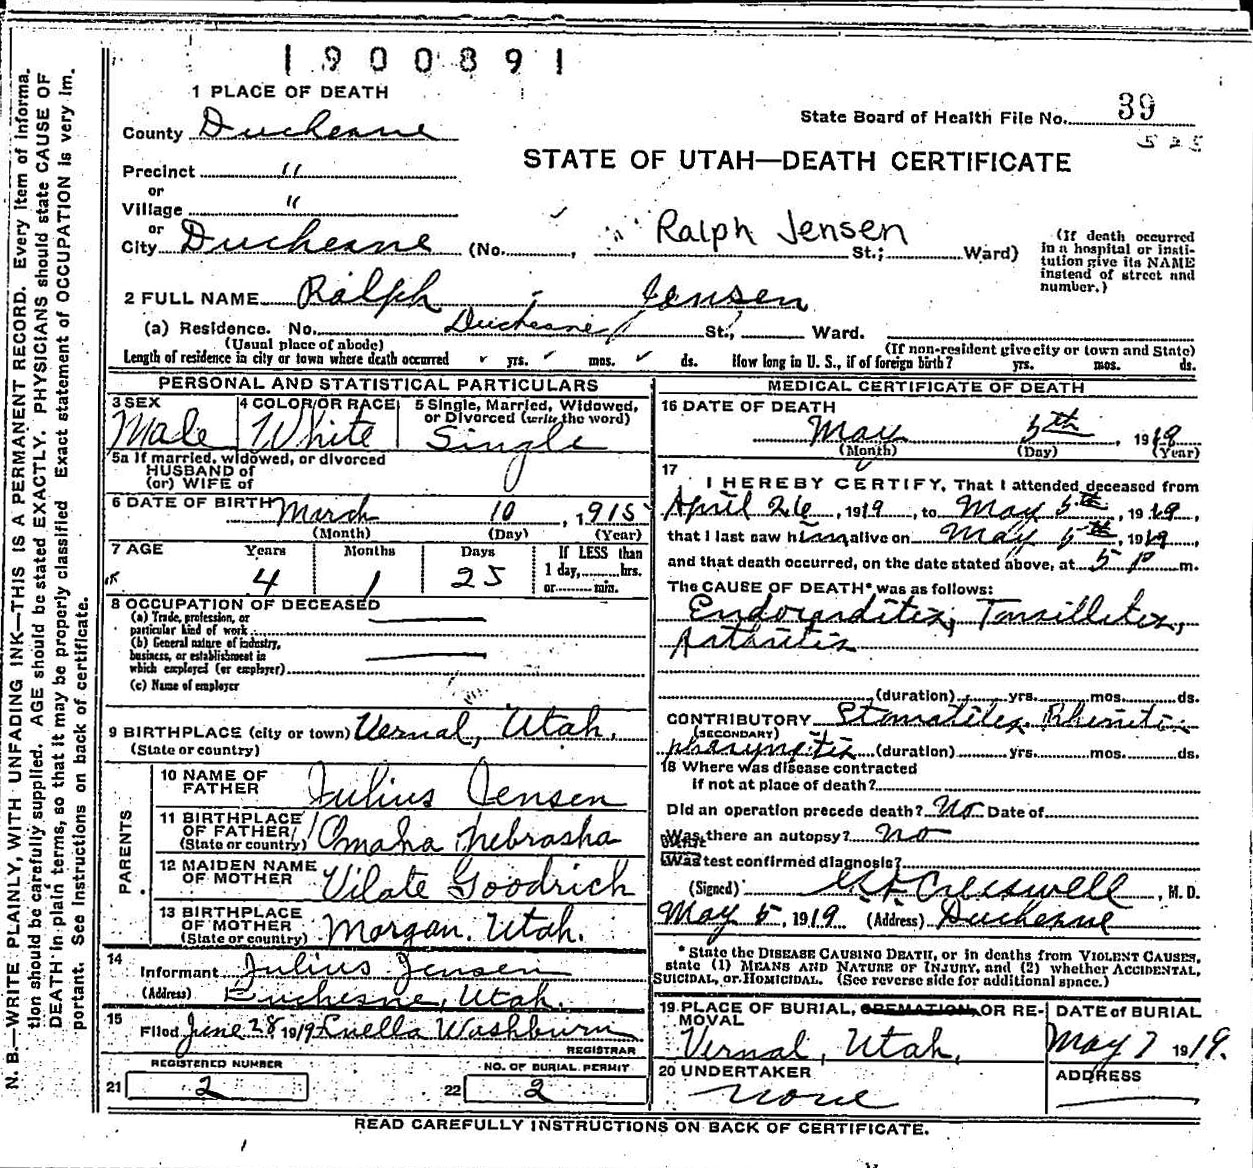 1900891
1 PLACE OF DEATH
State Board of Health File No. 39
525
County Duchesne
STATE OF UTAH—DEATH CERTIFICATE
Precinct "
or
Village "
or
City Duchesne (No. , St.; Ward)
Ralph Jensen
(If death occurred in a hospital or institution give its NAME instead of street and number.)
2 FULL NAME Ralph - Jensen
(a) Residence. No. Duchesne St., Ward.
(Usual place of abode)
(If non-resident give city or town and State)
Length of residence in city or town where death occurred yrs. mos. ds. How long in U. S., if of foreign birth? yrs. mos. ds.
PERSONAL AND STATISTICAL PARTICULARS
3 SEX Male
4 COLOR OR RACE White
5 Single, Married, Widowed, or Divorced (write the word) Single
5a If married, widowed, or divorced
HUSBAND of
(or) WIFE of
6 DATE OF BIRTH March 10, 1915
(Month) (Day) (Year)
7 AGE Years Months Days If LESS than
4 1 25 1 day, hrs.
or min.
8 OCCUPATION OF DECEASED
(a) Trade, profession, or
particular kind of work
(b) General nature of industry,
business, or establishment in
which employed (or employer)
(c) Name of employer
9 BIRTHPLACE (city or town) Vernal, Utah.
(State or country)
PARENTS
10 NAME OF FATHER Julius Jensen
11 BIRTHPLACE OF FATHER (State or country) Omaha Nebraska
12 MAIDEN NAME OF MOTHER Vilate Goodrich
13 BIRTHPLACE OF MOTHER (State or country) Morgan. Utah.
14
Informant Julius Jensen
(Address) Duchesne, Utah.
15
Filed June 28 1919 Luella Washburn
REGISTRAR
REGISTERED NUMBER
21 2
NO. OF BURIAL PERMIT
22 2
MEDICAL CERTIFICATE OF DEATH
16 DATE OF DEATH
May 5th, 1919
(Month) (Day) (Year)
17
I HEREBY CERTIFY, That I attended deceased from
April 26, 1919, to May 5th, 1919,
that I last saw him alive on May 5th, 1919,
and that death occurred, on the date stated above, at 5 P m.
The CAUSE OF DEATH* was as follows:
Endocarditis, Tonsilletis,
Arthritis
(duration) yrs. mos. ds.
CONTRIBUTORY Stomatites. Rhinitis
(SECONDARY)
pharyngitis (duration) yrs. mos. ds.
18 Where was disease contracted
if not at place of death?
Did an operation precede death? No Date of
Was there an autopsy? no
What test confirmed diagnosis?
(Signed) Cresswell, M. D.
May 5, 1919 (Address) Duchesne
* State the DISEASE CAUSING DEATH, or in deaths from VIOLENT CAUSES,
state (1) MEANS AND NATURE OF INJURY, and (2) whether ACCIDENTAL,
SUICIDAL, or HOMICIDAL. (See reverse side for additional space.)
19 PLACE OF BURIAL, CREMATION, OR REMOVAL
Vernal, Utah.
DATE of BURIAL
May 7 1919.
20 UNDERTAKER
none
ADDRESS
READ CAREFULLY INSTRUCTIONS ON BACK OF CERTIFICATE.
N. B.—WRITE PLAINLY, WITH UNFADING INK—THIS IS A PERMANENT RECORD. Every item of informa-
tion should be carefully supplied. AGE should be stated EXACTLY. PHYSICIANS should state CAUSE OF
DEATH in plain terms, so that it may be properly classified. Exact statement of OCCUPATION is very im-
portant. See Instructions on back of certificate.